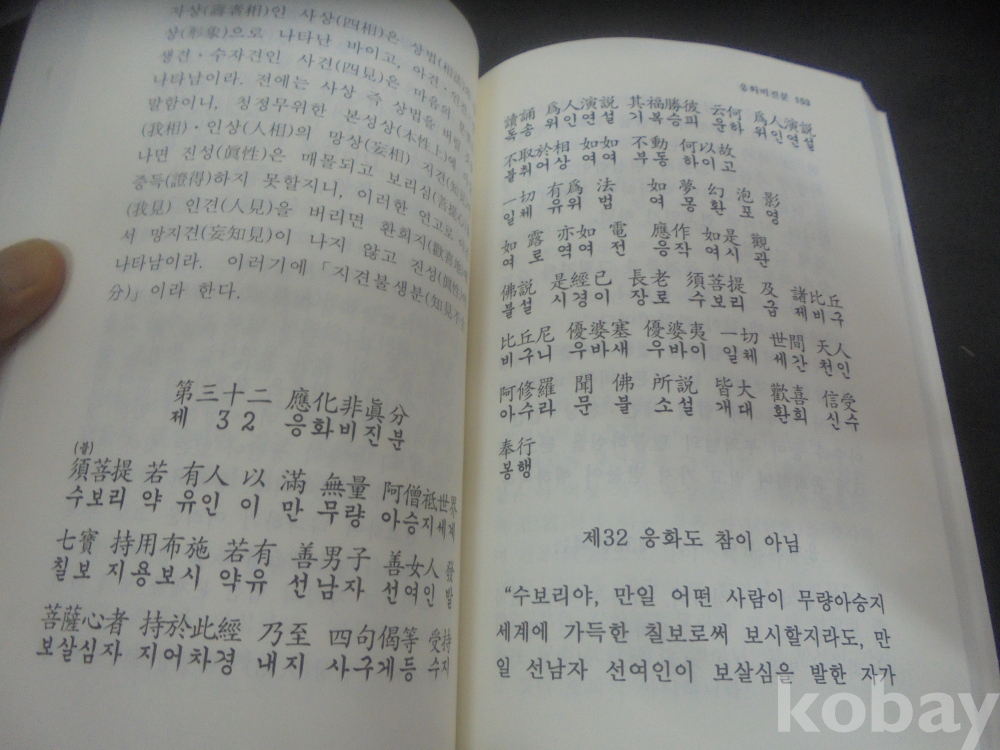 자상(壽者相)인 사상(四相)은 상법(相法)
상(形象)으로 나타난 바이고, 아견·인견
생견·수자견인 사견(四見)은 마음의
나타남이라. 전에는 사상 즉 상법을 버릴
발함이니, 청정무위한 본성상(本性上)에
(我相)·인상(人相)의 망상(妄相) 지견(知見)
나면 진성(眞性)은 매몰되고 보리심(菩提心)
증득(證得)하지 못할지니, 이러한 연고로
(我見) 인견(人見)을 버리면 환희지(歡喜地)
서 망지견(妄知見)이 나지 않고 진성(眞性)
나타남이라. 이러기에 「지견불생분(知見不生
分)」이라 한다.
第三十二 應化非眞分
제 3 2 응화비진분
(불)
須菩提 若 有人 以 滿 無量 阿僧祇世界
수보리 약 유인 이 만 무량 아승지세계
七寶 持用布施 若有 善男子 善女人 發
칠보 지용보시 약유 선남자 선여인 발
菩薩心者 持於此經 乃至 四句偈等 受持
보살심자 지어차경 내지 사구게등 수지
응화비진분 153
讀誦 爲人演説 其福勝彼 云何 爲人演説
독송 위인연설 기복승피 운하 위인연설
不取於相 如如 不動 何以故
불취어상 여여 부동 하이고
一切 有爲 法 如 夢 幻 泡 影
일체 유위 법 여 몽 환 포 영
如 露 亦如 電 應作 如是 觀
여 로 역여 전 응작 여시 관
佛説 是經已 長老 須菩提 及 諸比丘
불설 시경이 장로 수보리 급 제비구
比丘尼 優婆塞 優婆夷 一切 世間 天人
비구니 우바새 우바이 일체 세간 천인
阿修羅 聞 佛 所説 皆大 歡喜 信受
아수라 문 불 소설 개대 환희 신수
奉行
봉행
제32 응화도 참이 아님
“수보리야, 만일 어떤 사람이 무량아승지
세계에 가득한 칠보로써 보시할지라도, 만
일 선남자 선여인이 보살심을 발한 자가
kobay